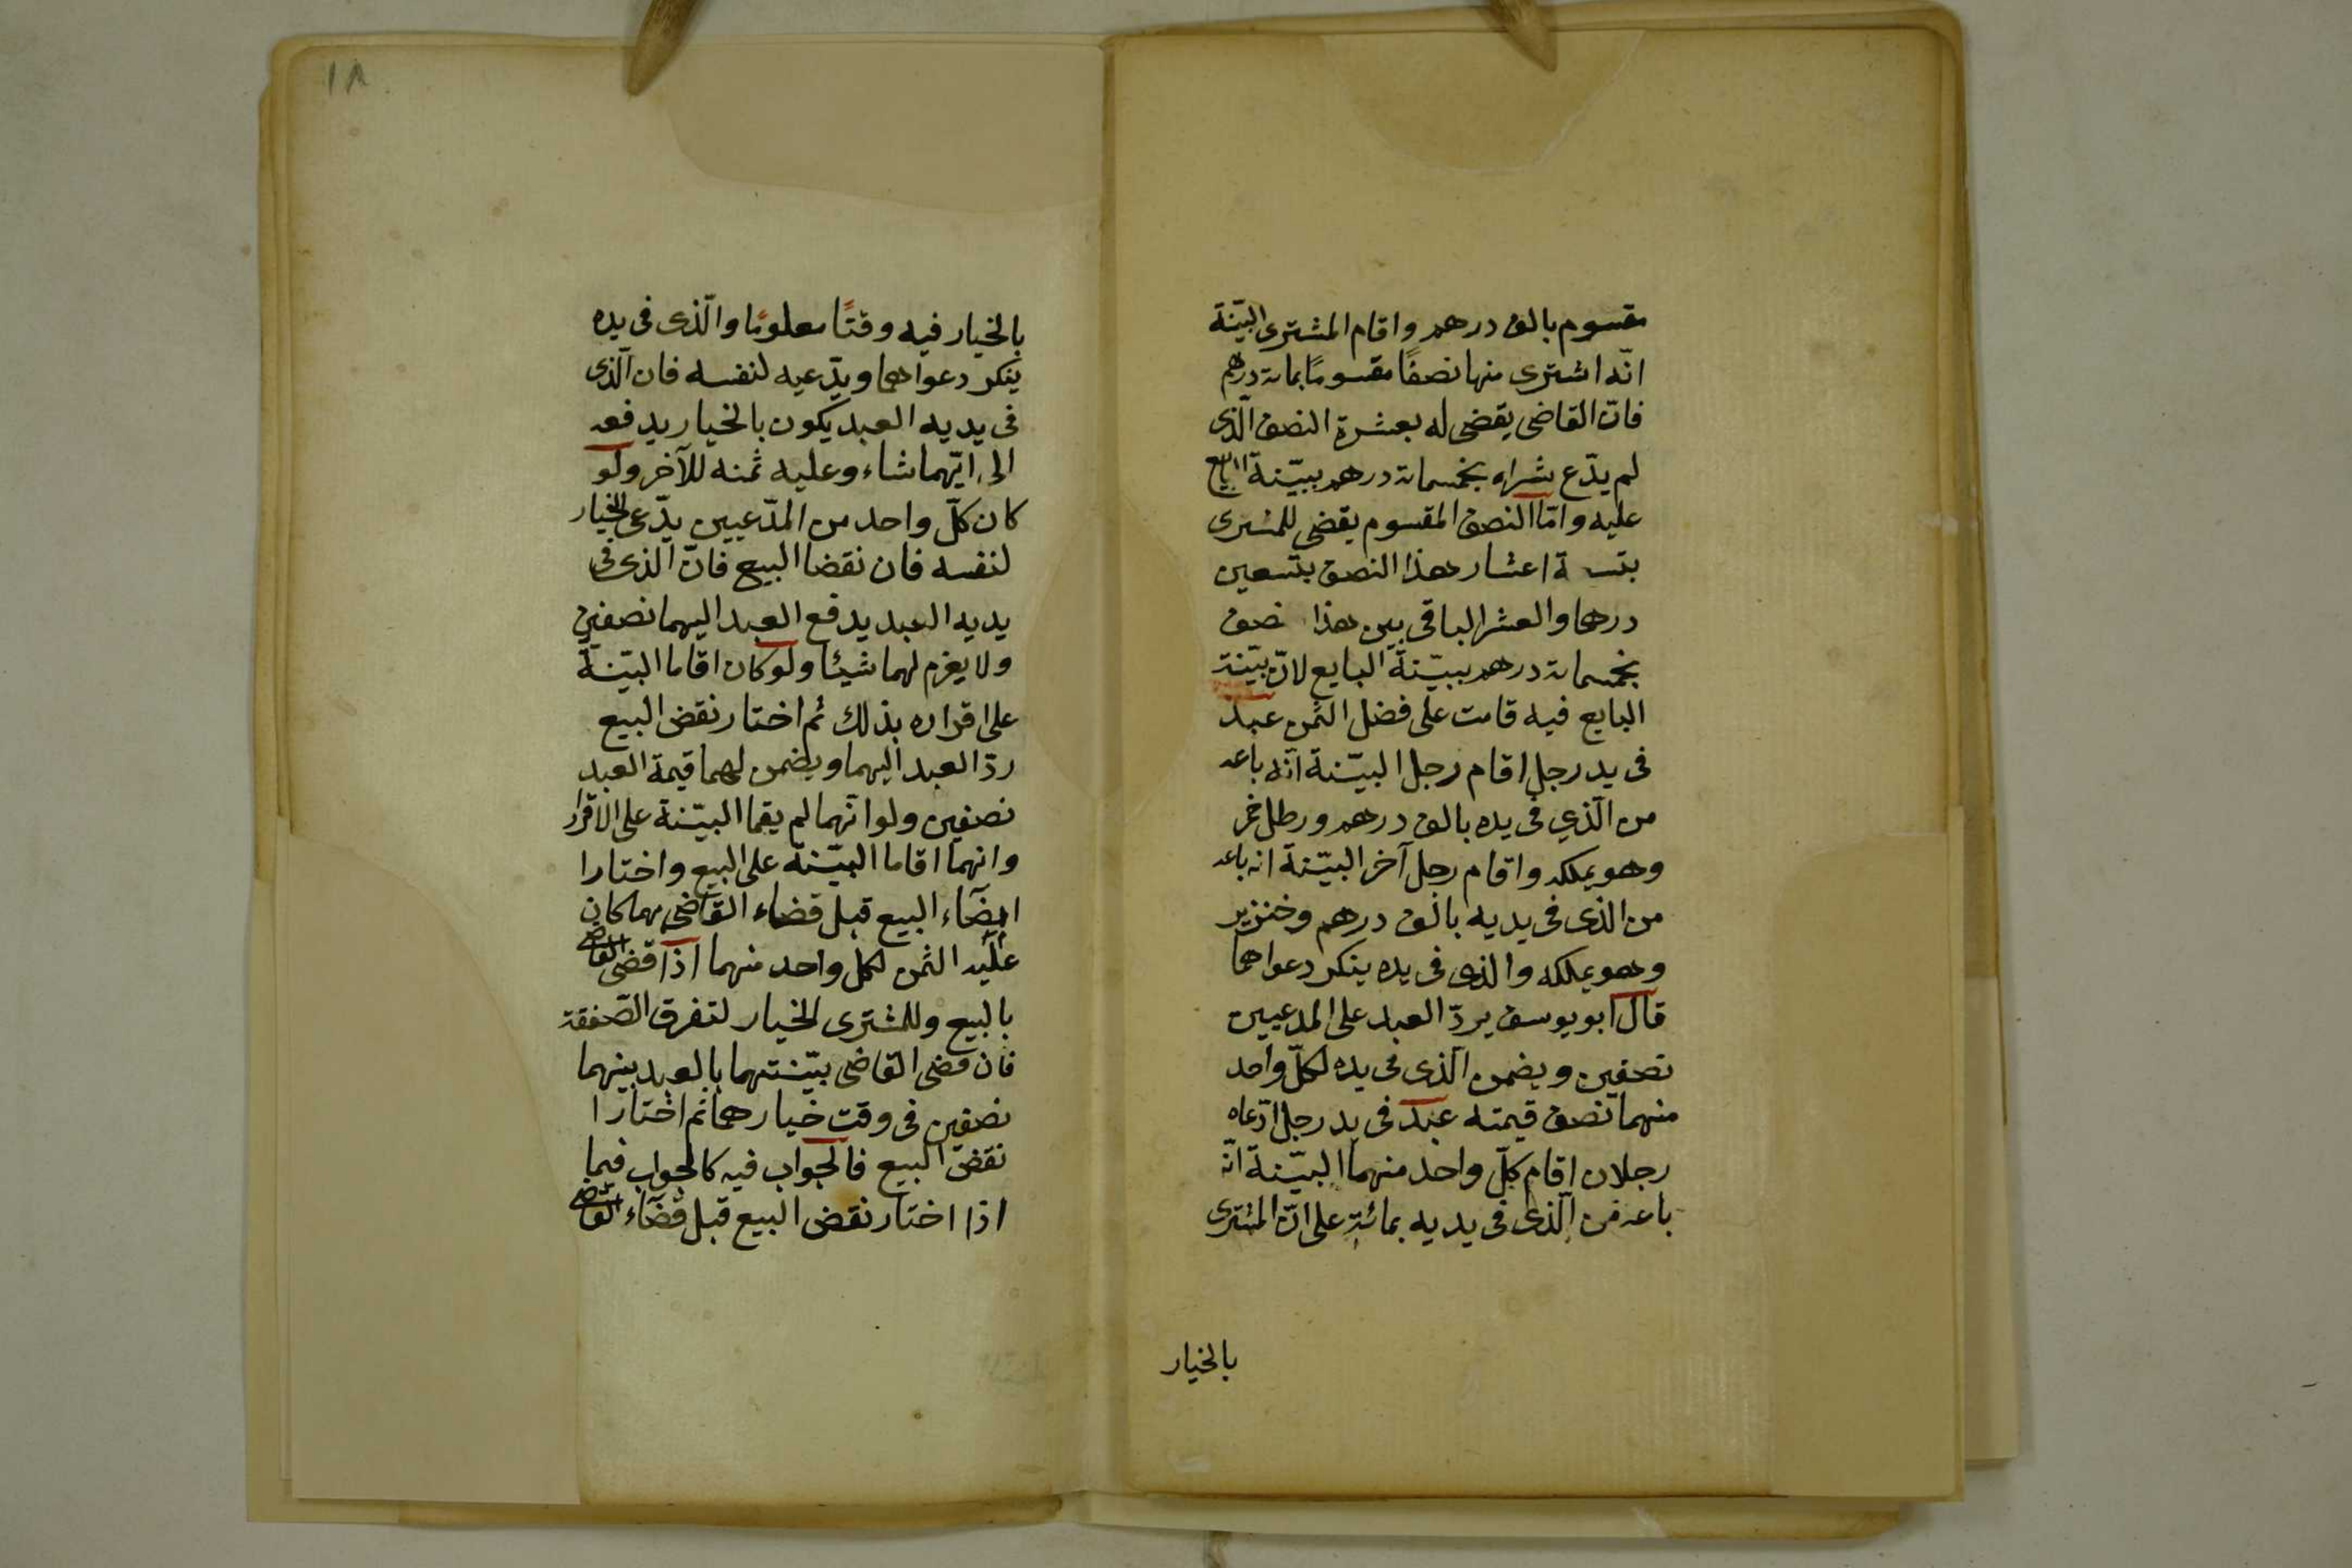 مقسوم بالف درهم واقام المشترى البيّنة
انّه اشترى منها نصفًا مقسومًا بمائة درهم
فانّ القاضى يقضى له بعشرة النصف الّذى
لم يدّع شراه بخمسمائة درهم ببيّنة البايع
عليه وامّا النصف المقسوم يقضى للمشترى
بتسعة اعشار هذا النصف بتسعين
درهما والعشر الباقى بين هذا نصف
بخمسمائة درهم ببيّنة البايع لانّ بيّنة
البايع فيه قامت على فضل الثمن عبد
فى يد رجل اقام رجل البيّنة انّه باعه
من الّذي فى يده بالف درهم ورطل خمر
وهو يملكه واقام رجل آخر البيّنة انه باعه
من الذى فى يديه بالف درهم وخنزير
وهو يملكه والذى فى يده ينكر دعواهما
قال ابو يوسف يردّ العبد على المدعيين
نصفين ويضمن الّذى فى يده لكلّ واحد
منهما نصف قيمته عبد فى يد رجل ادّعاه
رجلان اقام كلّ واحد منهما البيّنة انّه
باعه من الّذى فى يديه بمائة على انّ المشترى
بالخيار
١٨
بالخيار فيه وقتًا معلومًا والّذى فى يده
ينكر دعواهما ويدّعيه لنفسه فان الّذى
فى يديه العبد يكون بالخيار يدفعه
الى ايّهما شاء وعليه ثمنه للآخر ولو
كان كلّ واحد من المدّعيين يدّعى الخيار
لنفسه فان نقضا البيع فانّ الذى فى
يديه العبد يدفع العبد اليهما نصفين
ولا يغرم لهما شيئًا ولو كان اقاما البيّنة
على اقراره بذلك ثم اختار نقض البيع
ردّ العبد اليهما ويضمن لهما قيمة العبد
نصفين ولو انّهما لم يقما البيّنة على الاقرار
وانهما اقاما البيّنة على البيع واختارا
امضاء البيع قبل قضاء القاضى مهما كان
عليه الثمن لكل واحد منهما اذا قضى القاضى
بالبيع وللمشترى الخيار لتفرق الصّفقة
فان قضى القاضى ببيّنتهما بالعبد بينهما
نصفين فى وقت خيارهما ثم اختارا
نقض البيع فالجواب فيه كالجواب فيما
اذا اختار نقض البيع قبل قضآء القاضى